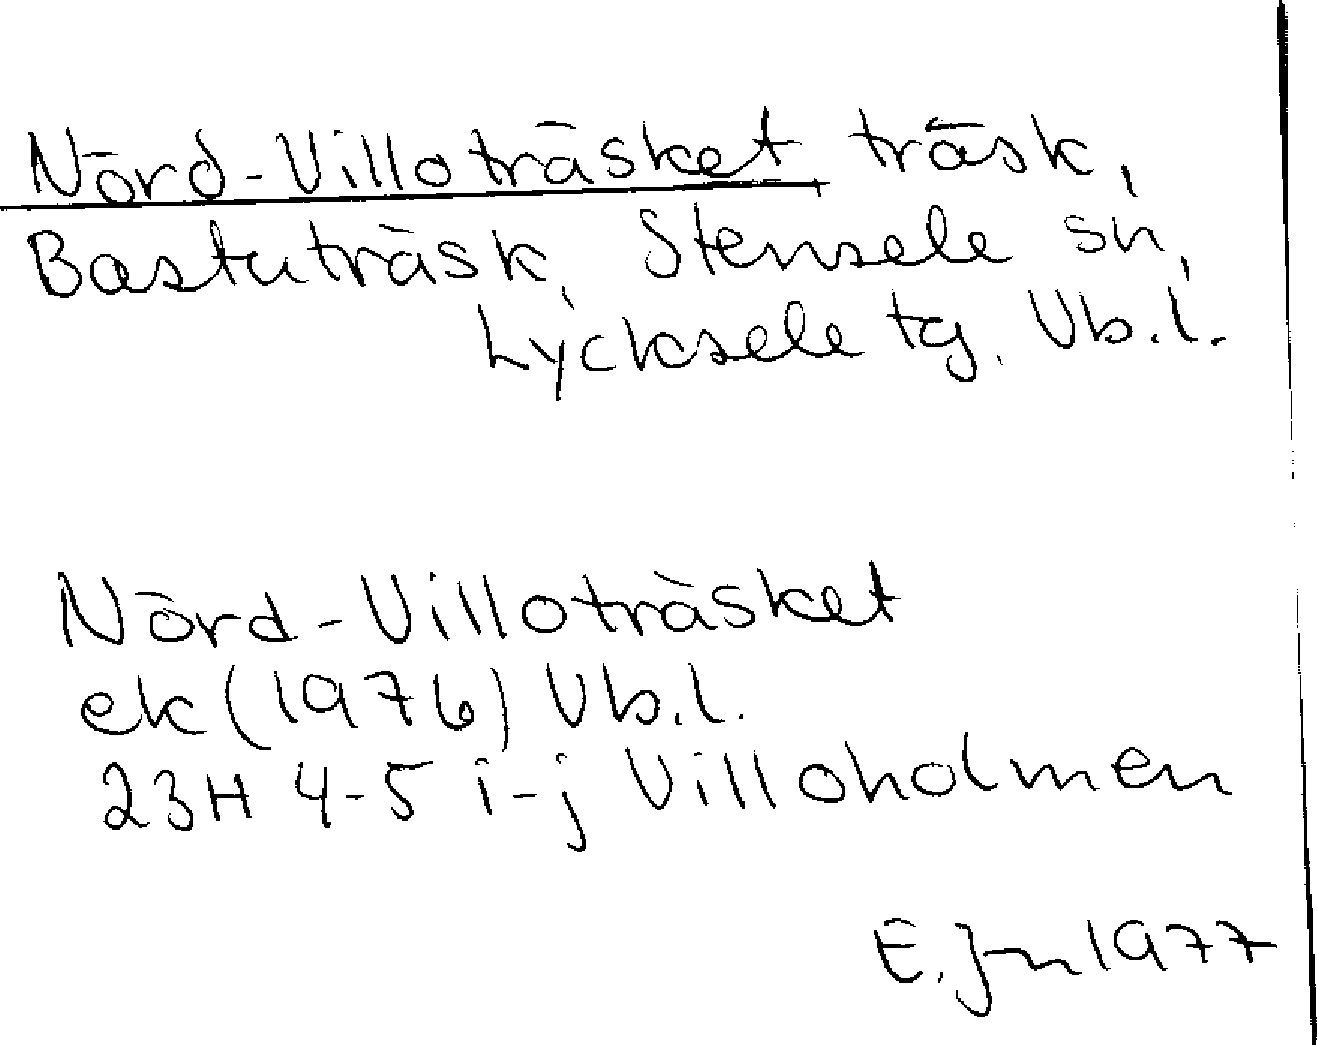 Nörd-Villoträsket träsk,
Bastuträsk, Stensele sn,
Lycksele tg. Vb.l.
Nörd-Villoträsket
ek (1976) Vb.l.
23H 4-5 i-j Villoholmen
E. Jn 1977